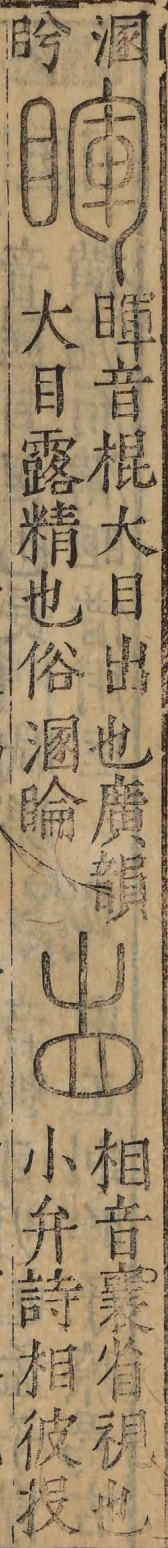 溷
盻
睴
睴音棍大目出也廣韻
大目露精也俗溷睔
相
相音襄省視也
小弁詩相彼投